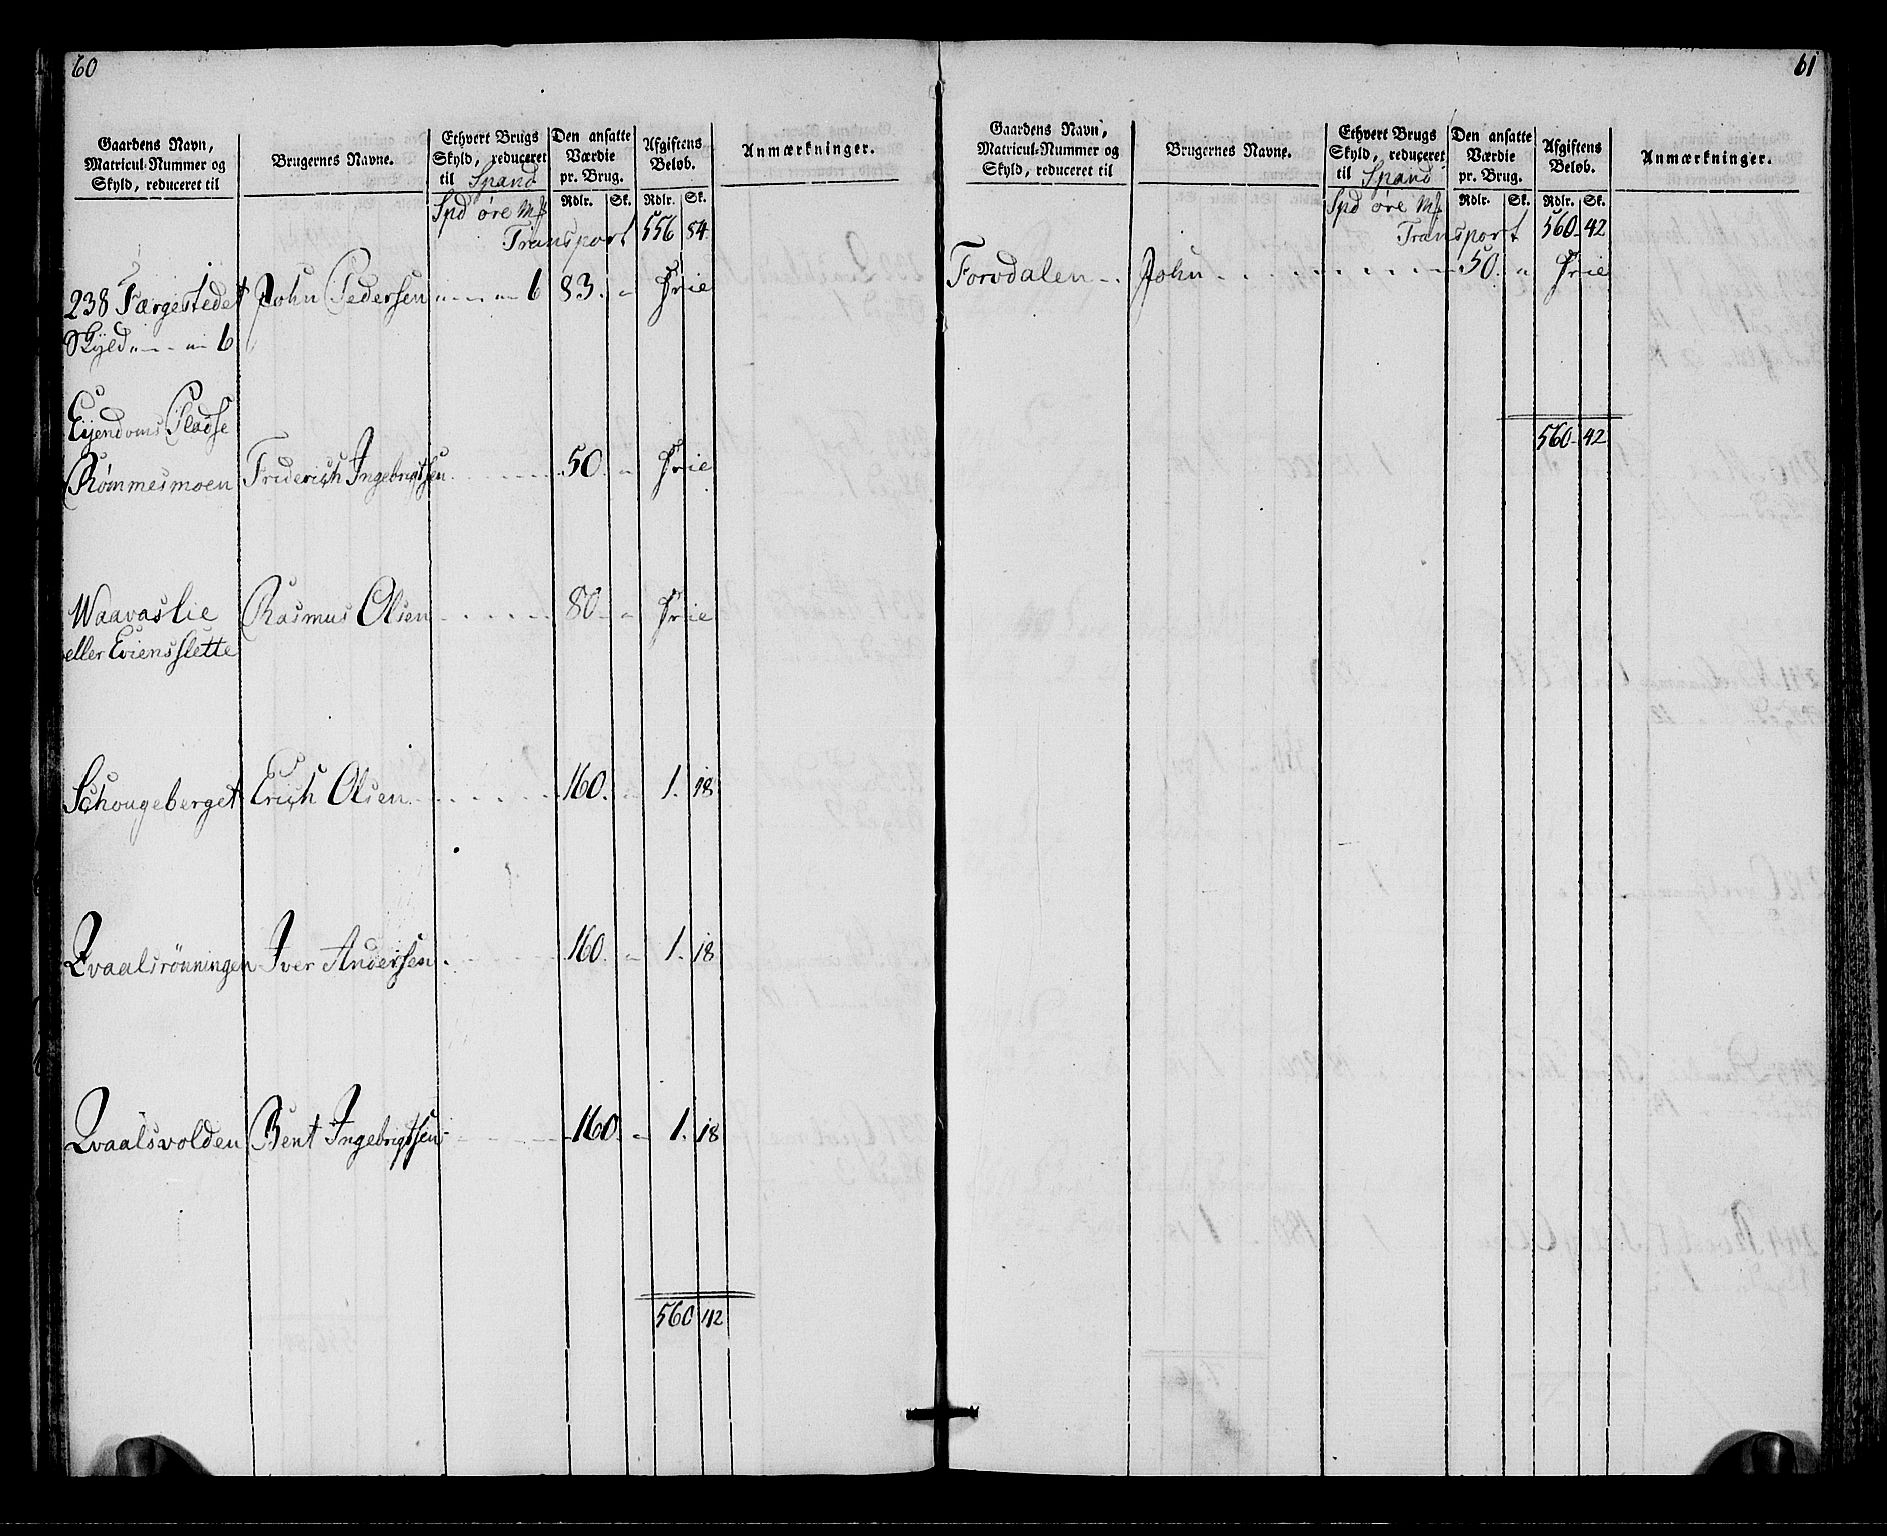 60
Gaardens Navn, Matricul-Nummer og Skyld, reduceret til
Brugernes Navne.
Ethvert Brugs Skyld, reduceret til Spand
Den ansatte Værdie pr. Brug.
Afgiftens Beløb.
Anmærkninger.
Rdlr. Sk. Rdlr. Sk.
Spd öre
Transport 556 84
238 Færgestedet John Pedersen " — " — 6 83. " Frie
Skyld " — " — 6
Eijendoms Pladse
Rømmesmoen Friderich Ingebrigtsen 50. " Frie
Waavaslie Rasmus Olsen 80 " Frie
eller Eviensslette
Schougeberget Erich Olsen 160. " 1. 18
Qvaalsrönningen Iver Andersen 160. " 1. 18
Qvaalsvolden Bent Ingebrigtsen 160. " 1. 18
560 42
61
Gaardens Navn, Matricul-Nummer og Skyld, reduceret til
Brugernes Navne.
Ethvert Brugs Skyld, reduceret til Spand
Den ansatte Værdie pr. Brug.
Afgiftens Beløb.
Anmærkninger.
Rdlr. Sk. Rdlr. Sk.
Spd öre
Transport 560 42
Forvdalen John 50. " Frie
560 42